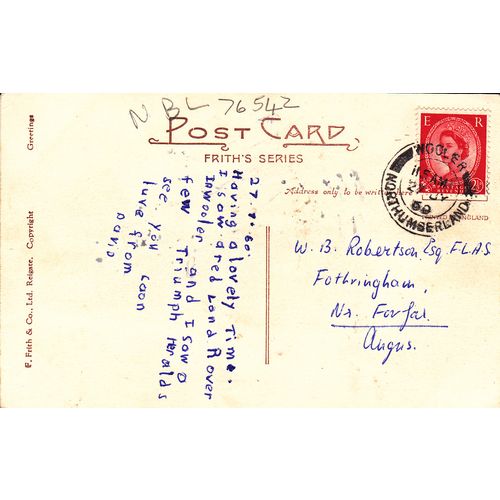 NBL 76542
POST CARD
FRITH'S SERIES
Address only to be written here
ENGLAND
E R
WOOLER
NORTHUMBERLAND
27.7.60.
Having a lovely Time.
I saw a red Land Rover
In wooler and I saw a
few Triumph Heralds
see you soon
luve from
David
W. B. Robertson Esq. F.L.A.S.
Fothringham,
Nr. Forfar,
Angus.
Greetings
F. Frith & Co., Ltd. Reigate. Copyright